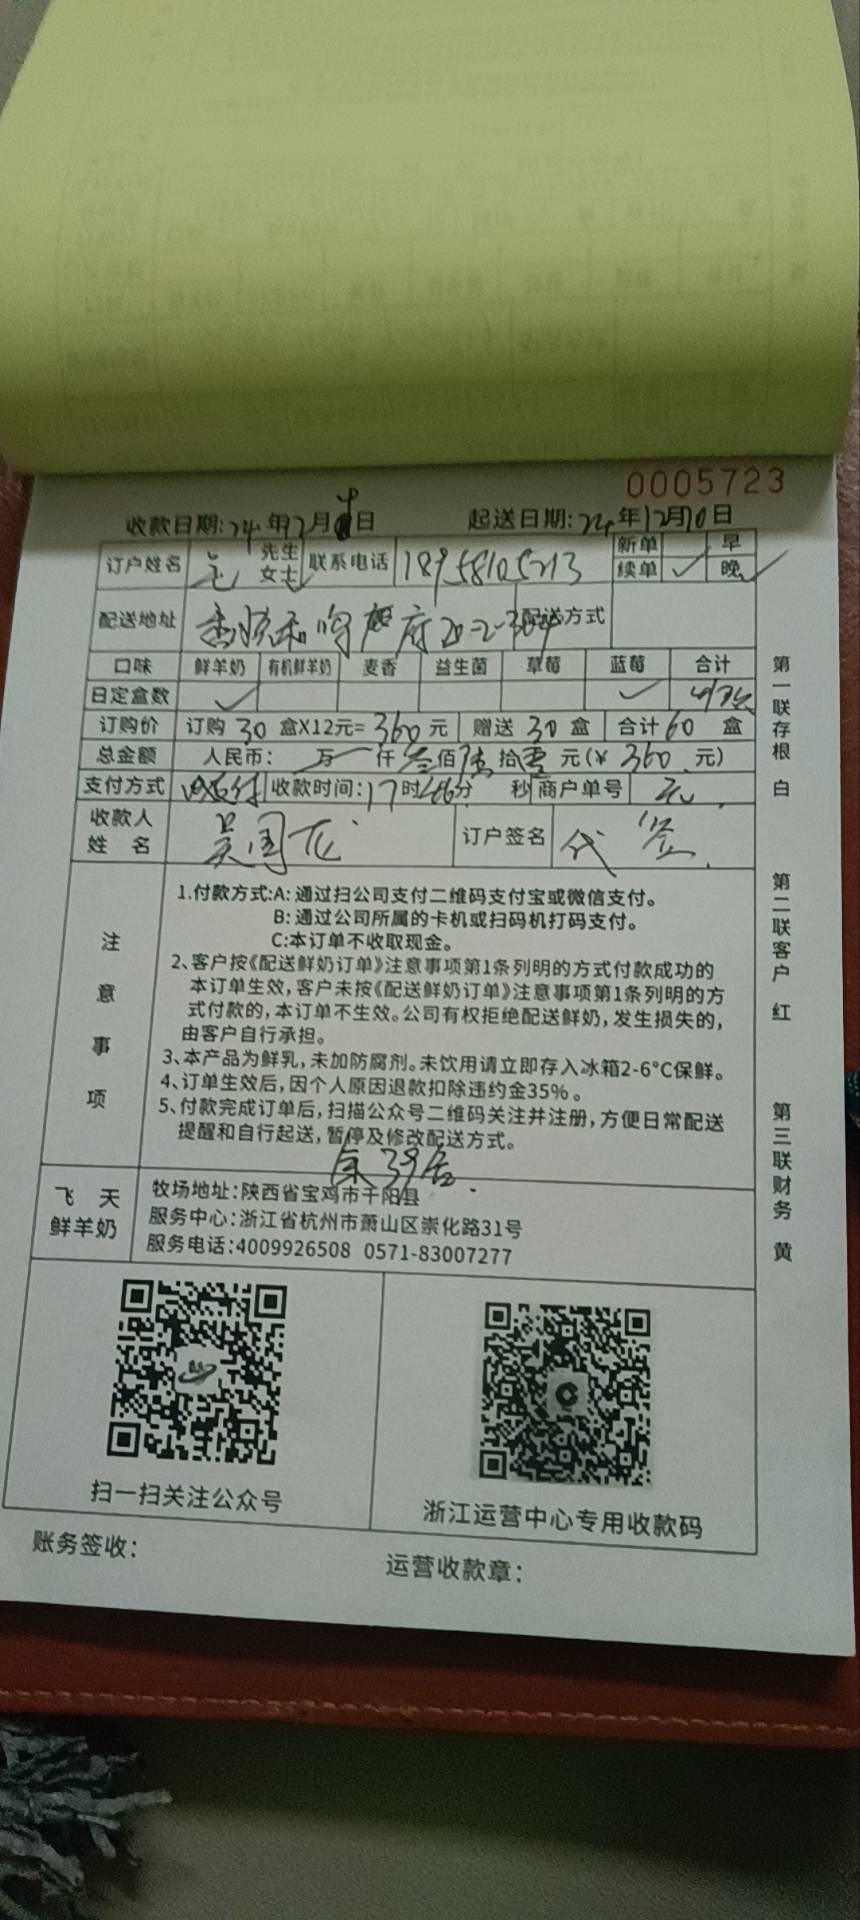 0005723
收款日期:24年12月9日 起送日期:24年12月10日
订户姓名 先生 女士 联系电话 18958105213 新单 早 续单 ✓ 晚 ✓
配送地址 府20-2-304 配送方式
口味 鲜羊奶 有机鲜羊奶 麦香 益生菌 草莓 蓝莓 合计
日定盒数 ✓ ✓
订购价 订购 30 盒X12元= 360 元 赠送 30 盒 合计 60 盒
总金额 人民币: 万 仟 叁佰 陆拾 零元(¥ 360 元)
支付方式 收款时间:17时46分 秒 商户单号 无
收款人姓名 吴国 订户签名 代签
注意事项
1.付款方式:A: 通过扫公司支付二维码支付宝或微信支付。
B: 通过公司所属的卡机或扫码机打码支付。
C:本订单不收取现金。
2、客户按《配送鲜奶订单》注意事项第1条列明的方式付款成功的
本订单生效,客户未按《配送鲜奶订单》注意事项第1条列明的方
式付款的,本订单不生效。公司有权拒绝配送鲜奶,发生损失的,
由客户自行承担。
3、本产品为鲜乳,未加防腐剂。未饮用请立即存入冰箱2-6°C保鲜。
4、订单生效后,因个人原因退款扣除违约金35%。
5、付款完成订单后,扫描公众号二维码关注并注册,方便日常配送
提醒和自行起送,暂停及修改配送方式。
飞天
鲜羊奶
牧场地址:陕西省宝鸡市千阳县
服务中心:浙江省杭州市萧山区崇化路31号
服务电话:4009926508 0571-83007277
扫一扫关注公众号
浙江运营中心专用收款码
账务签收:
运营收款章:
第一联存根 白
第二联客户 红
第三联财务 黄